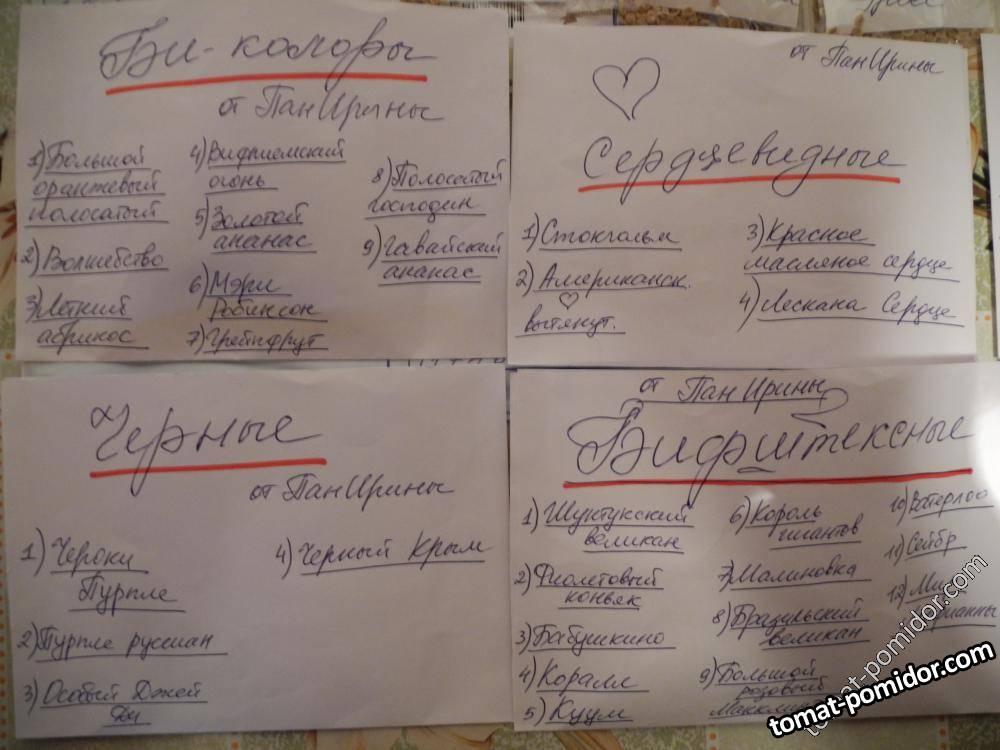 Би-колоры
от Пан Ирины
1) Большой
оранжевый
полосатый
2) Волшебство
3) Летний
абрикос
4) Вифлиемский
огонь
5) Золотой
ананас
6) Мэри
Робинсон
7) Грейпфрут
8) Полосатый
господин
9) Гавайский
ананас
от Пан Ирины
Сердцевидные
1) Стокгольм
2) Американск.
вытянут.
3) Красное
масляное сердце
4) Лескана Сердце
Черные
от Пан Ирины
1) Чероки
Пурпле
2) Пурпле руссиан
3) Особый Джей
Ди
4) Черный Крым
от Пан Ирины
Бифштексные
1) Шунтукский
великан
2) Фиолетовый
коньяк
3) Бабушкино
4) Коралл
5) Куум
6) Король
гигантов
7) Малиновка
8) Бразильский
великан
9) Большой
розовый
10) Ватерлоо
11) Сейбр
12)
tomat-pomidor.com
tomat-pomidor.com